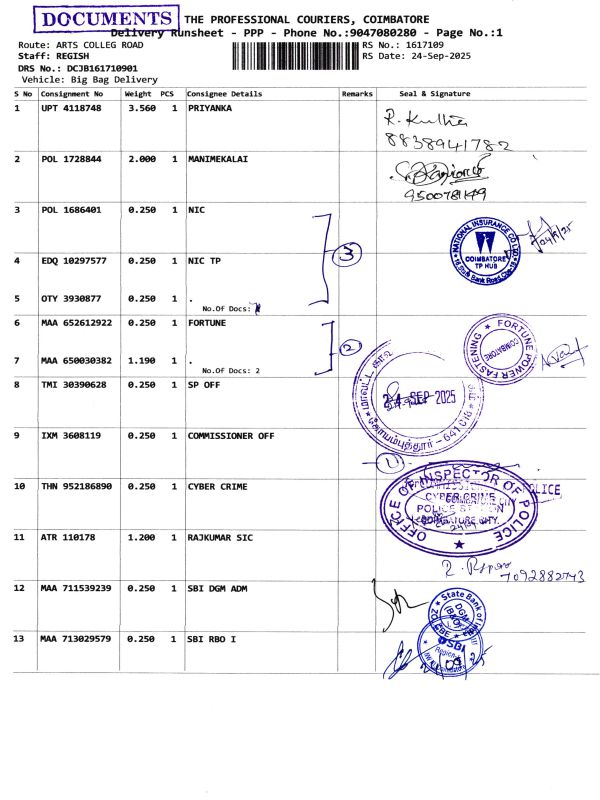 DOCUMENTS
THE PROFESSIONAL COURIERS, COIMBATORE
Delivery Runsheet - PPP - Phone No.:9047080280 - Page No.:1
Route: ARTS COLLEG ROAD
RS No.: 1617109
Staff: REGISH
RS Date: 24-Sep-2025
DRS No.: DCJB161710901
Vehicle: Big Bag Delivery
S No Consignment No Weight PCS Consignee Details Remarks Seal & Signature
1 UPT 4118748 3.560 1 PRIYANKA
8838941782
2 POL 1728844 2.000 1 MANIMEKALAI
9500781149
3 POL 1686401 0.250 1 NIC
NATIONAL INSURANCE CO LTD
COIMBATORE
TP HUB
24/9/25
3
4 EDQ 10297577 0.250 1 NIC TP
5 OTY 3930877 0.250 1 .
No.Of Docs:
6 MAA 652612922 0.250 1 FORTUNE
FORTUNE POWER FASTENING
COIMBATORE
2
7 MAA 650030382 1.190 1 .
No.Of Docs: 2
8 TMI 30390628 0.250 1 SP OFF
24 SEP 2025
கோயம்புத்தூர் - 641 018
9 IXM 3608119 0.250 1 COMMISSIONER OFF
10 THN 952186890 0.250 1 CYBER CRIME
OFFICE OF INSPECTOR OF POLICE
CYBER CRIME
POLICE STATION
COIMBATORE CITY.
11 ATR 110178 1.200 1 RAJKUMAR SIC
7092882743
12 MAA 711539239 0.250 1 SBI DGM ADM
State Bank of
DGM
13 MAA 713029579 0.250 1 SBI RBO I
SBI